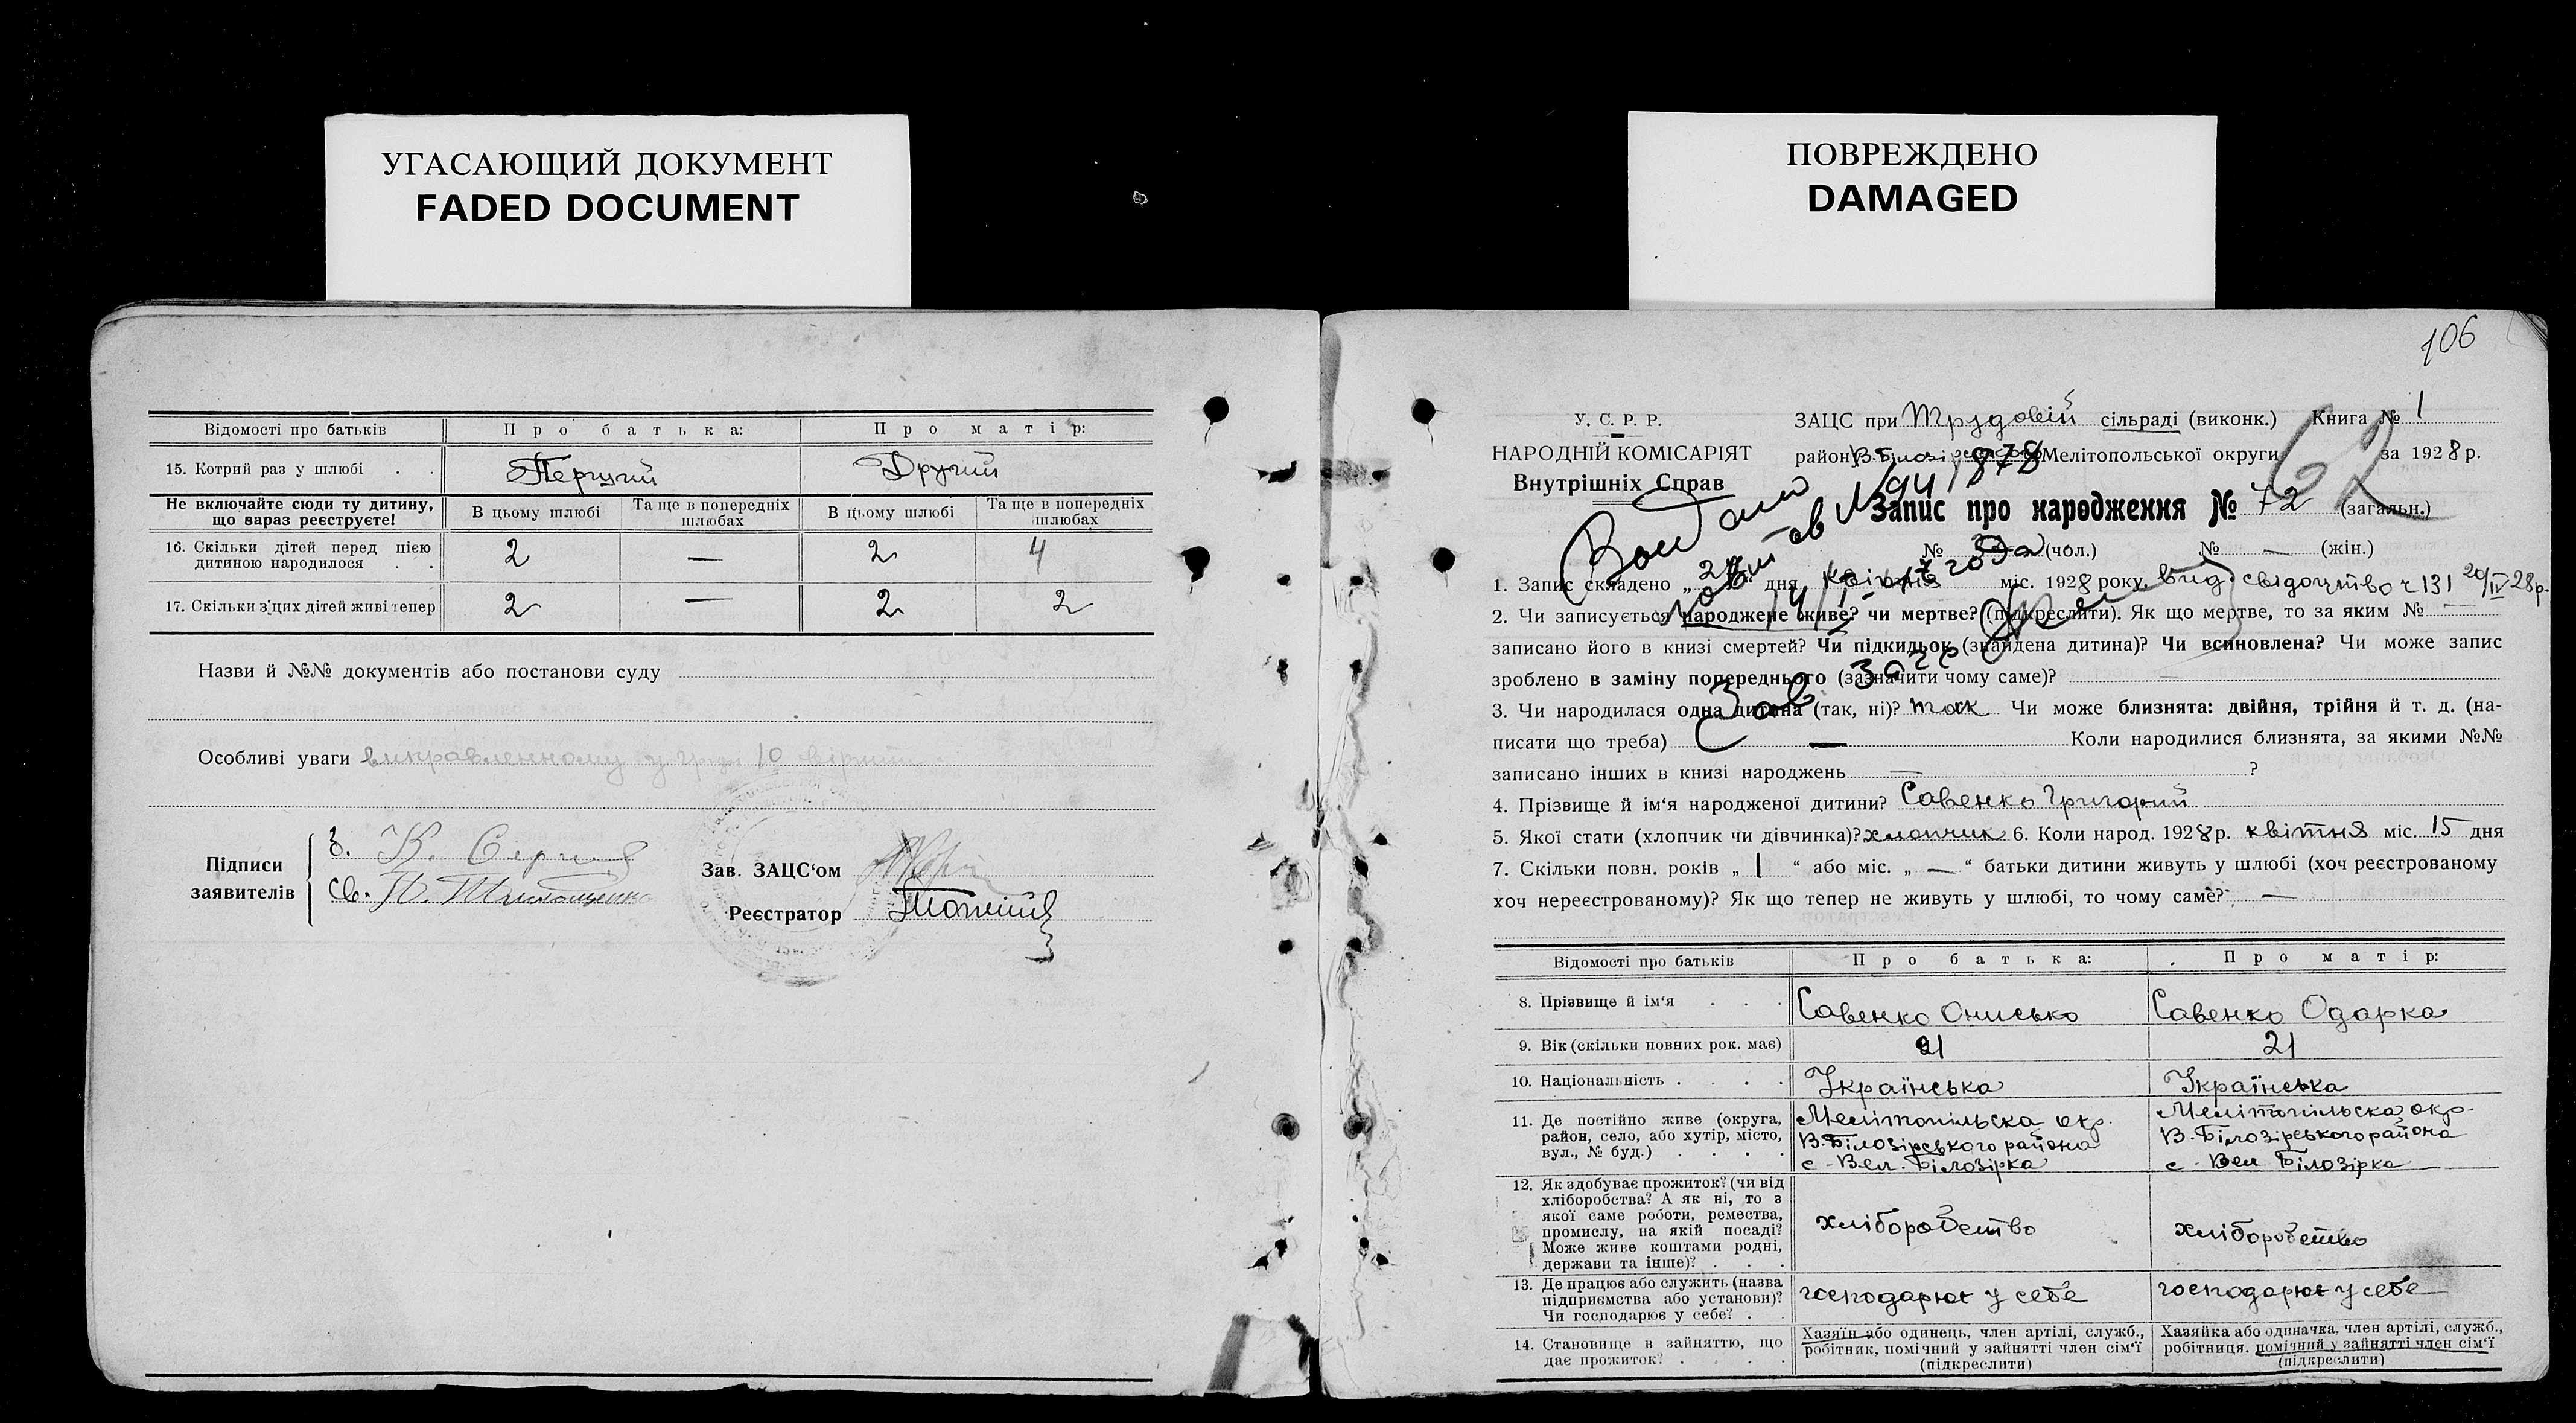 УГАСАЮЩИЙ ДОКУМЕНТ
FADED DOCUMENT
Відомості про батьків
Про батька:
Про матір:
15. Котрий раз у шлюбі . .
Перший
Другий
Не включайте сюди ту дитину, що вараз реєструєте!
В цьому шлюбі
Та ще в попередніх шлюбах
В цьому шлюбі
Та ще в попередніх шлюбах
16. Скільки дітей перед цією
дитиною народилося . .
2
—
2
4
17. Скільки з цих дітей живі тепер
2
—
2
2
Назви й №№ документів або постанови суду
Особливі уваги виправленному у 10
Підписи
заявителів
Зав. ЗАЦС‘ом
Реєстратор
ПОВРЕЖДЕНО
DAMAGED
106
У. С. Р. Р.
НАРОДНІЙ КОМІСАРІЯТ
Внутрішніх Справ
ЗАЦС при Трудовій сільраді (виконк.) Книга № 1
район В. Мелітопольської округи за 1928 р.
62
Запис про народження № 72 (загальн.)
№ (чол.) № — (жін.)
1. Запис складено „ “ дня квітня міс. 1928 року вид. свідоцтво ч 131 20/IV 28р.
2. Чи записується народжене живе? чи мертве? (підкреслити). Як що мертве, то за яким № —
записано його в книзі смертей? Чи підкидьок (знайдена дитина)? Чи всиновлена? Чи може запис
зроблено в заміну попереднього (зазначити чому саме)? —
3. Чи народилася одна дитина (так, ні)? так Чи може близнята: двійня, трійня й т. д. (на-
писати що треба) — Коли народилися близнята, за якими №№
записано інших в книзі народжень — ?
4. Прізвище й ім‘я народженої дитини? Савенко Григорий
5. Якої стати (хлопчик чи дівчинка)? хлопчик 6. Коли народ. 1928 р. квітня міс. 15 дня
7. Скільки повн. років „ 1 “ або міс. „ — “ батьки дитини живуть у шлюбі (хоч реєстрованому
хоч нереєстрованому)? Як що тепер не живуть у шлюбі, то чому саме? —
Відомості про батьків
Про батька:
Про матір:
8. Прізвище й ім‘я . . .
Савенко Онисько
Савенко Одарка
9. Вік (скільки повних рок. має)
21
21
10. Національність . . . .
Українська
Українська
11. Де постійно живе (округа,
район, село, або хутір, місто,
вул., № буд.) . . . .
Мелітопільска окр.
В. Білозірського района
с - Вел. Білозірка
Мелітопільска окр.
В. Білозірського района
с - Вел Білозірка
12. Як здобуває прожиток? (чи від
хліборобства? А як ні, то з
якої саме роботи, ремества,
промислу, на якій посаді?
Може живе коштами родні,
держави та інше)? . . .
хліборобство
хліборобство
13. Де працює або служить (назва
підприємства або установи)?
Чи господарює у себе? . .
господарює у себе
господарює у себе
14. Становище в зайняттю, що
дає прожиток? . . . .
Хазяїн або одинець, член артілі, служб.,
робітник, помічний у зайнятті член сім‘ї
(підкреслити)
Хазяйка або одиначка, член артілі, служб.,
робітниця, помічний у зайнятті член сім‘ї
(підкреслити)